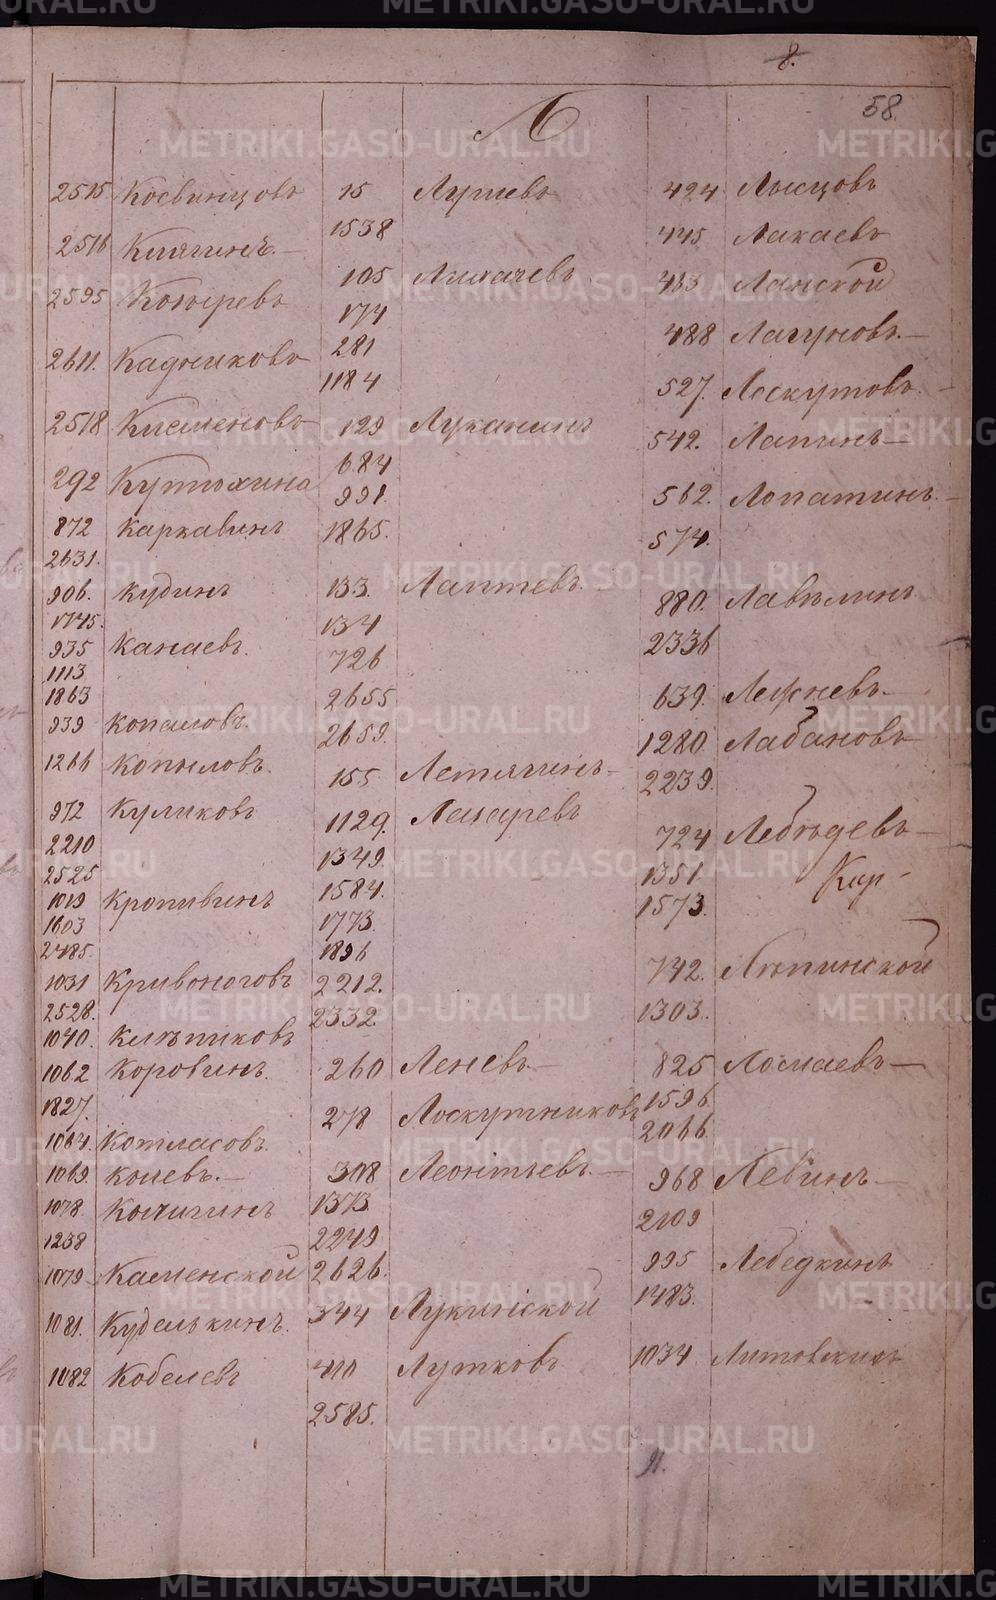 8.
58.
2515 Косвинцовъ
2516 Княгинъ.
2595 Козыревъ
2611. Кадниковъ
2518
292 Кутюхина
872 Каркавинъ
2631.
906. Кудинъ
1745.
935 Канаевъ.
1113
1863
939 Копаловъ.
1266 Копыловъ.
972 Куликовъ
2210
2525
1019 Кропивинъ
1603
2485.
1031 Кривоноговъ
2528.
1040. Клѣпиковъ
1062 Коровинъ.
1827.
1064. Котласовъ.
1069. Колевъ.
1078 Кочигинъ
1238
1079 Каменской
1081. Куделькинъ.
1082 Кобелевъ
Л
15
1538
105 Лихачевъ
174
281
1184
129 Луканинъ
684
991.
1865.
133. Лаптевъ.
134
726
2655
2659.
155 Летягинъ
1129. Лазаревъ
1349.
1584.
1773.
1896
2212.
2332.
260 Леневъ
278 Лоскутниковъ
308 Леонтьевъ.
1373
2249
2626.
344 Лукинской
410 Лутковъ
2585.
424 Лысцовъ
445. Лакаевъ
463 Ланской
488 Лагуновъ.
527. Лоскутовъ.
542. Лапинъ
562. Лопатинъ.
574.
880. Лавѣлинъ
2336
639. Лежневъ.
1280. Лабановъ
2239.
724 Лебѣдевъ
1351. Кир
1573.
742. Лѣпинской
1303.
825 Ломаевъ
1596
2066
968 Левинъ
2109
995 Лебедкинъ
1483.
1034 Литовскихъ
91.
METRIKI.GASO-URAL.RU